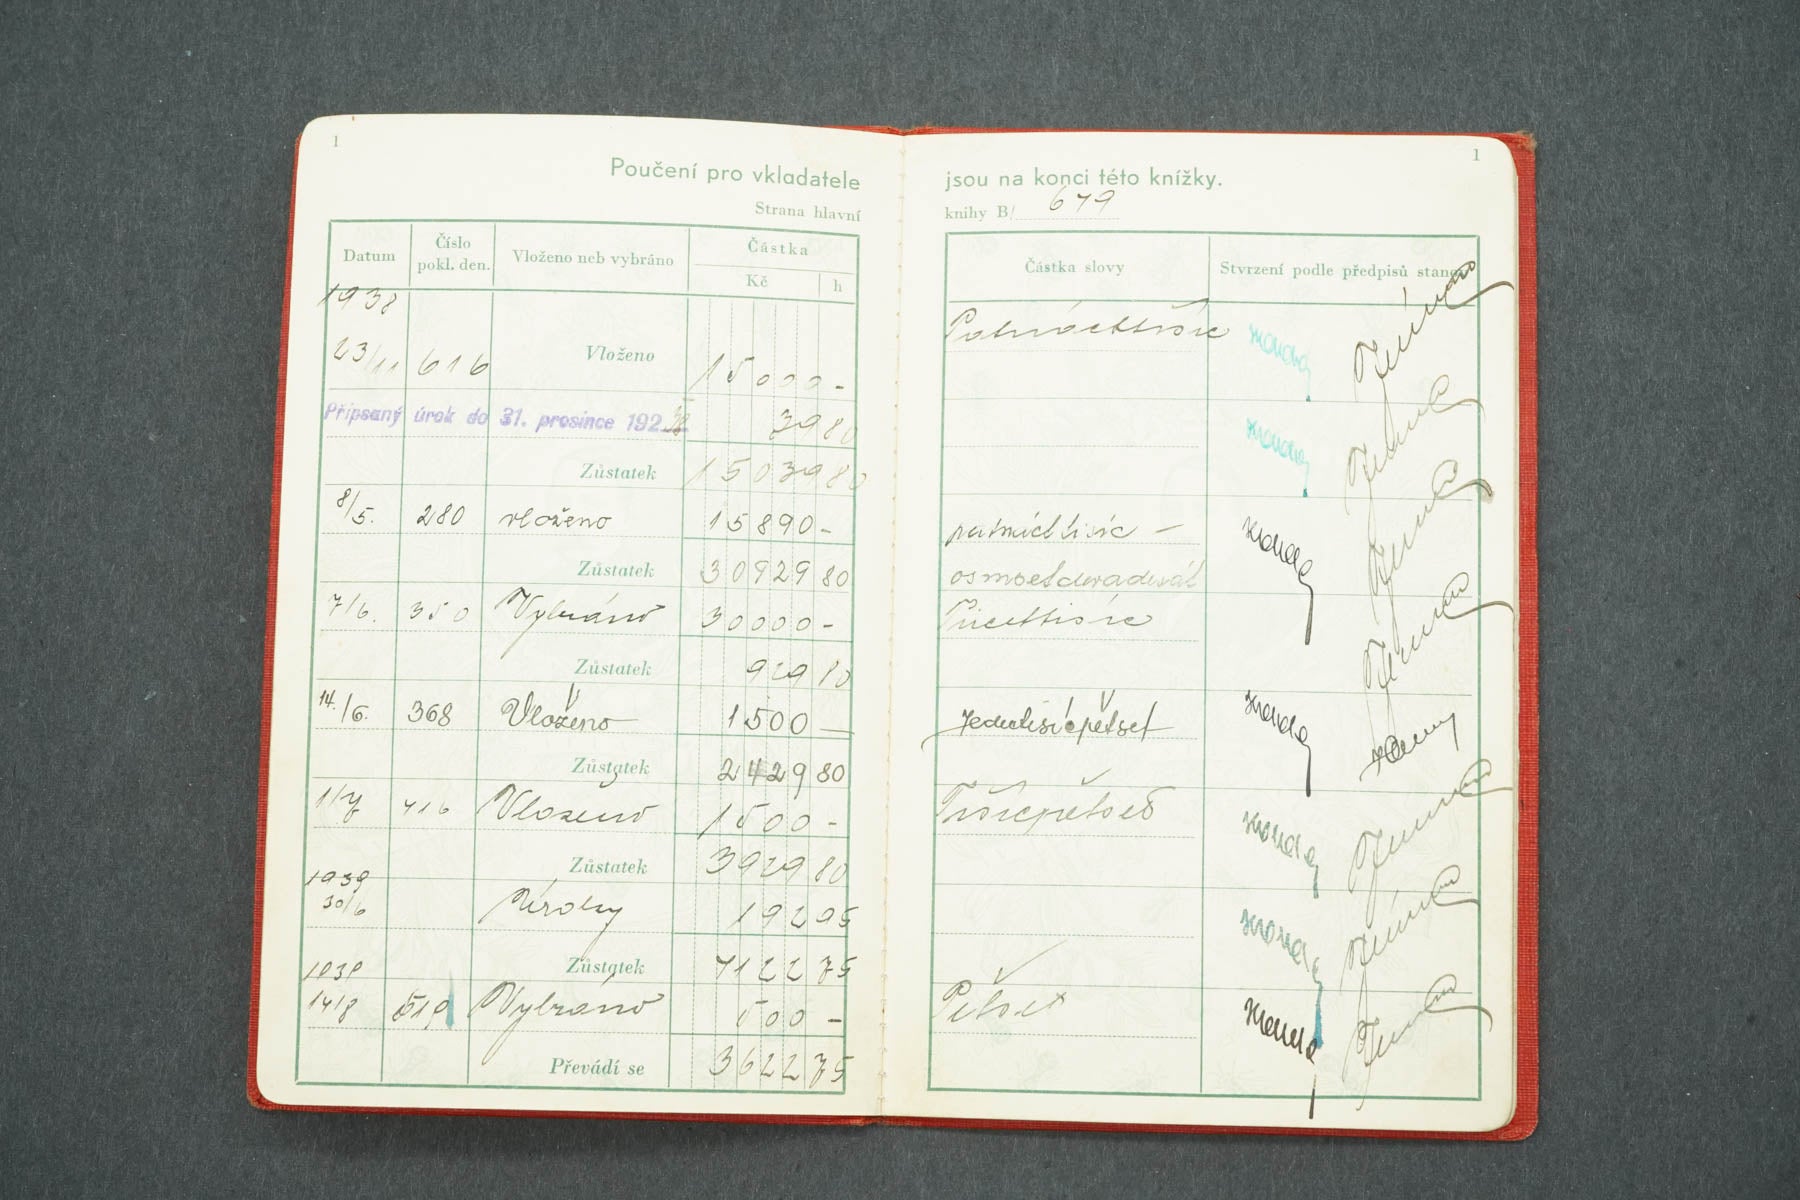 1
1
Poučení pro vkladatele
jsou na konci této knížky.
Strana hlavní
knihy B/ 679
Datum
Číslo pokl. den.
Vloženo neb vybráno
Částka
Kč
h
Částka slovy
Stvrzení podle předpisů stanov
1938
23/11 616 Vloženo 15000 - Patnácttisíc
Připsaný úrok do 31. prosince 192 38 39 80
Zůstatek 15039 80
8/5. 280 vloženo 15890 - patnácttisíc -
Zůstatek 30929 80 osmsetdevadesát
7/6. 350 Vybráno 30000 - Třicettisíc
Zůstatek 929 80
14./6. 368 Vloženo 1500 — Jedentisícpětset
Zůstatek 2429 80
1/7 416 Vloženo 1500 - Tisícpětset
Zůstatek 3929 80
1939
30/6 Úroky 192 95
Zůstatek 4122 75
1939
14/8 519 Vybráno 500 - Pětset
Převádí se 3622 75